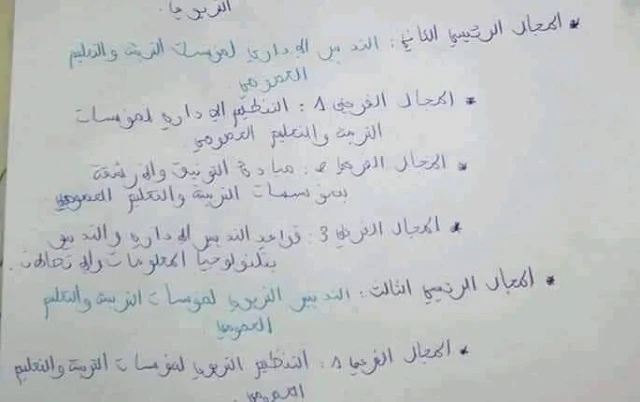 التربوي.
* المجال الرئيسي الثاني: التدبير الإداري لمؤسسات التربية والتعليم
العمومي
* المجال الفرعي 1: التنظيم الإداري لمؤسسات
التربية والتعليم العمومي
* المجال الفرعي 2: مبادئ التوثيق والأرشفة
بمؤسسات التربية والتعليم العمومي
* المجال الفرعي 3: قواعد التدبير الإداري والتدبير
بتكنولوجيا المعلومات والاتصالات.
* المجال الرئيسي الثالث: التدبير التربوي لمؤسسات التربية والتعليم
العمومي
* المجال الفرعي 1: التنظيم التربوي لمؤسسات التربية والتعليم
العمومي.